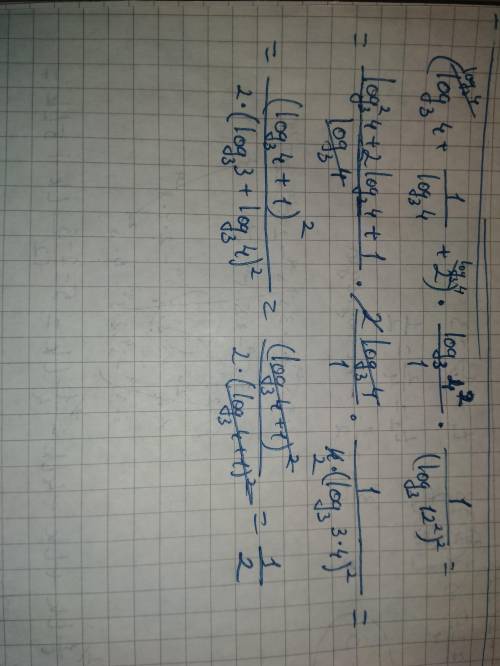 (log₃4 + 1/log₃4 + 2) · log₃4²/1 · 1/(log₃12²)² =
= (log₃²4 + 2log₃4 + 1)/log₃4 · 2log₃4/1 · 1/(4·(log₃3·4)²) =
= (log₃4 + 1)²/(2·(log₃3 + log₃4)²) = (log₃4 + 1)²/(2·(log₃4 + 1)²) = 1/2